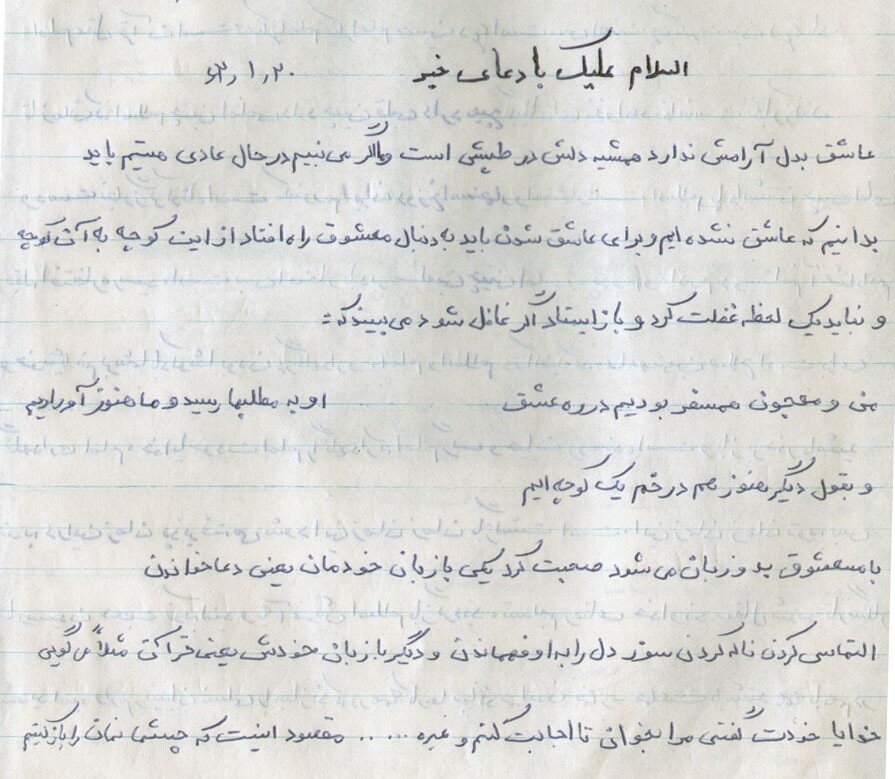 السلام علیک با دعای خیر ۶۳٫۱٫۲۰
عاشق بدل آرامش ندارد همشیه دلش در طپش است و اگر می بنیم در حال عادی هستیم باید
بدانیم که عاشق نشده ایم و برای عاشق شدن باید به دنبال معشوق راه افتاد از این کوچه به آن کوچه
و نباید یک لحظه غفلت کرد و باز ایستاد اگر غافل شود می بیند که:
من و معجون همسفر بودیم در ره عشق او به مطلبها رسید و ما هنوز آواره‌ایم
و بقول دیگر هنوز هم در خم یک کوچه ایم
با معشوق بدو زبان می شود صحبت کرد یکی با زبان خودمان یعنی دعا خواندن
التماس کردن ناله کردن سوز دل را به او فهماندن و دیگر با زبان خودش یعنی قرآن مثلاً می گویی
خدایا خودت گفتی مرا بخوانی تا اجابت کنم و غیره ..... مقصود اینیت که چشما نمان را باز کنیم